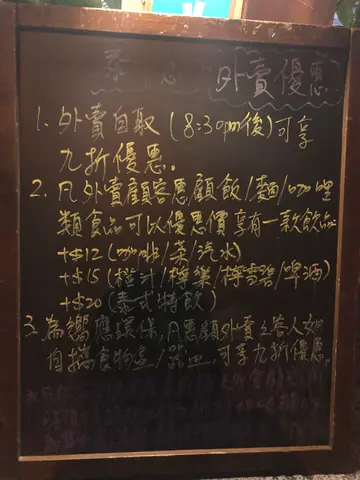 泰心
外賣優惠
1. 外賣自取 (8:30pm後) 可享
九折優惠。
2. 凡外賣顧客惠顧飯/麵/咖哩
類食品可以優惠價享有一款飲品
+$12 (咖啡/茶/汽水)
+$15 (橙汁/檸樂/檸雪碧/啤酒)
+$20 (泰式特飲)
3. 為響應環保, 凡惠顧外賣之客人如
自攜食物壺/器皿, 可享九折優惠。